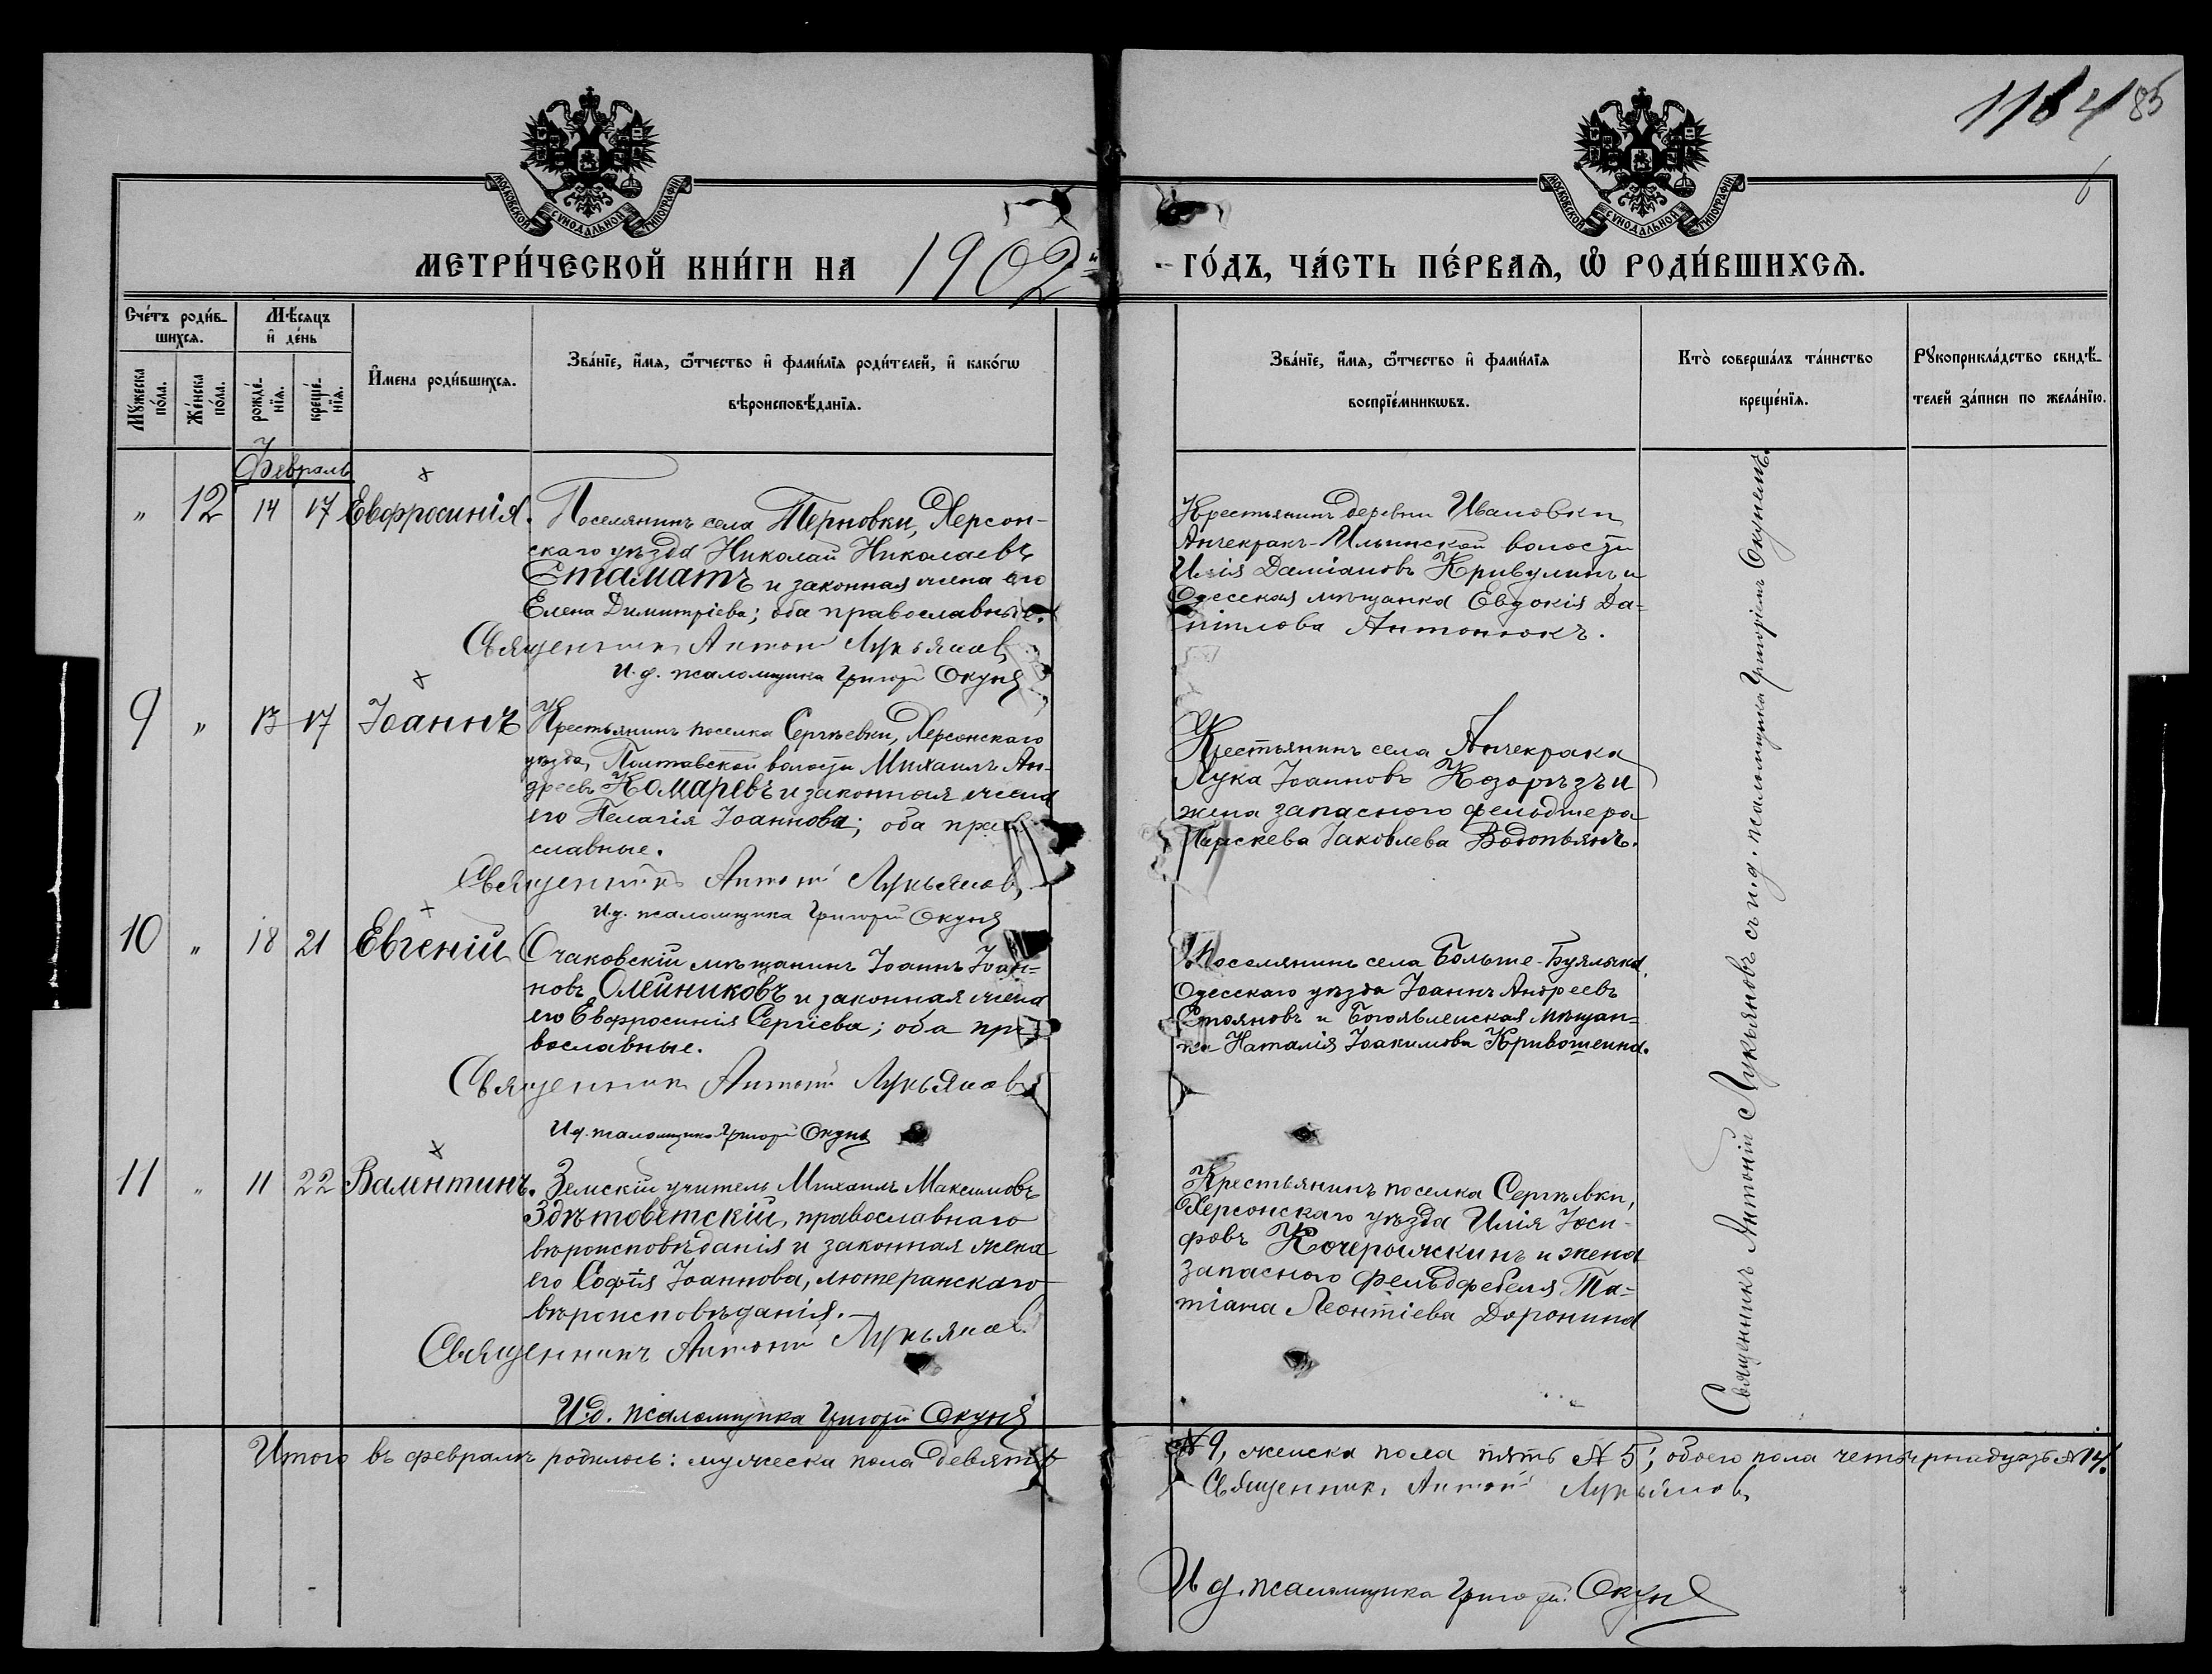 118485
6
МОСКОВСКОЙ СѴНОДАЛЬНОЙ ТИПОГРАФІИ
МОСКОВСКОЙ СѴНОДАЛЬНОЙ ТИПОГРАФІИ
МЕТРИ́ЧЕСКОЙ КНИ́ГИ НА 1902й ГО́ДЪ, ЧА́СТЬ ПЕ́РВАѦ, Ѡ҆ РОДИ́ВШИХСѦ.
Сче́тъ роди́в-
шихсѧ.
Мѣ́сѧцъ
и҆ де́нь
Мꙋ́жеска по́ла.
Же́нска по́ла.
рожде́-
нїѧ.
креще́-
нїѧ.
И҆мена роди́вшихсѧ.
Зва́нїе, и҆́мѧ, ѻ҆́тчество и҆ фами́лїѧ роди́телей, и҆ како́гѡ
вѣроисповѣ́данїѧ.
Зва́нїе, и҆́мѧ, ѻ҆́тчество и҆ фами́лїѧ
воспрїе́мникѡвъ.
Кто̀ соверша́лъ та́инство
креще́нїѧ.
Рꙋкоприкла́дство свидѣ́-
телей за́писи по жела́нїю.
Февраль
„ 12 14 17 Евфросинія.
Поселянинъ села Терновки, Херсон-
скаго уѣзда Николай Николаевъ
Стаматъ и законная жена его
Елена Димитріева; оба православные.
Священникъ Антоній Лукьяновъ
И. д. псаломщика Григорій Окунь
Крестьянинъ деревни Ивановки
Анчекракъ-Ильинской волости
Илія Даміановъ Кривулинъ и
Одесская мѣщанка Евдокія Да-
ніилова Антонюкъ.
9 „ 13 17 Іоаннъ
Крестьянинъ поселка Сергѣевки, Херсонскаго
уѣзда, Полтавской волости Михаилъ Ан-
дреевъ Комаревъ и законная жена
его Пелагія Іоаннова; оба право
славные.
Священникъ Антоній Лукьяновъ
И. д. псаломщика Григорій Окунь
Крестьянинъ села Анчекрака
Лука Іоанновъ Козорѣзъ и
жена запасного фельдшера
Параскева Іаковлева Водопьянъ.
10 „ 18 21 Евгеній
Очаковскій мѣщанинъ Іоаннъ Іоан-
новъ Олейниковъ и законная жена
его Евфросинія Сергіева; оба пра
вославные.
Священникъ Антоній Лукьяновъ
И. д. псаломщика Григорій Окунь
Поселянинъ села Больше-Буялыка,
Одесскаго уѣзда Іоаннъ Андреевъ
Стояновъ и Богоявленская мѣщан-
ка Наталія Іоакимова Кривошеина.
11 „ 11 22 Валентинъ.
Земскій учитель Михаилъ Максимовъ
Здѣтоветскій, православнаго
вѣроисповѣданія и законная жена
его Софія Іоаннова, лютеранскаго
вѣроисповѣданія.
Священникъ Антоній Лукьяновъ
И. д. псаломщика Григорій Окунь
Крестьянинъ поселка Сергѣевки,
Херсонскаго уѣзда Илія Іоси-
фовъ Кочерыжкинъ и жена
запасного фельдфебеля Та-
тіана Леонтіева Доронина
Священникъ Антоній Лукьяновъ съ и. д. псаломщика Григоріемъ Окунемъ.
Итого въ февралѣ родилось: мужеска пола девять № 9, женска пола пять № 5; обоего пола четырнадцать № 14.
Священникъ Антоній Лукьяновъ
И. д. псаломщика Григорій Окунь